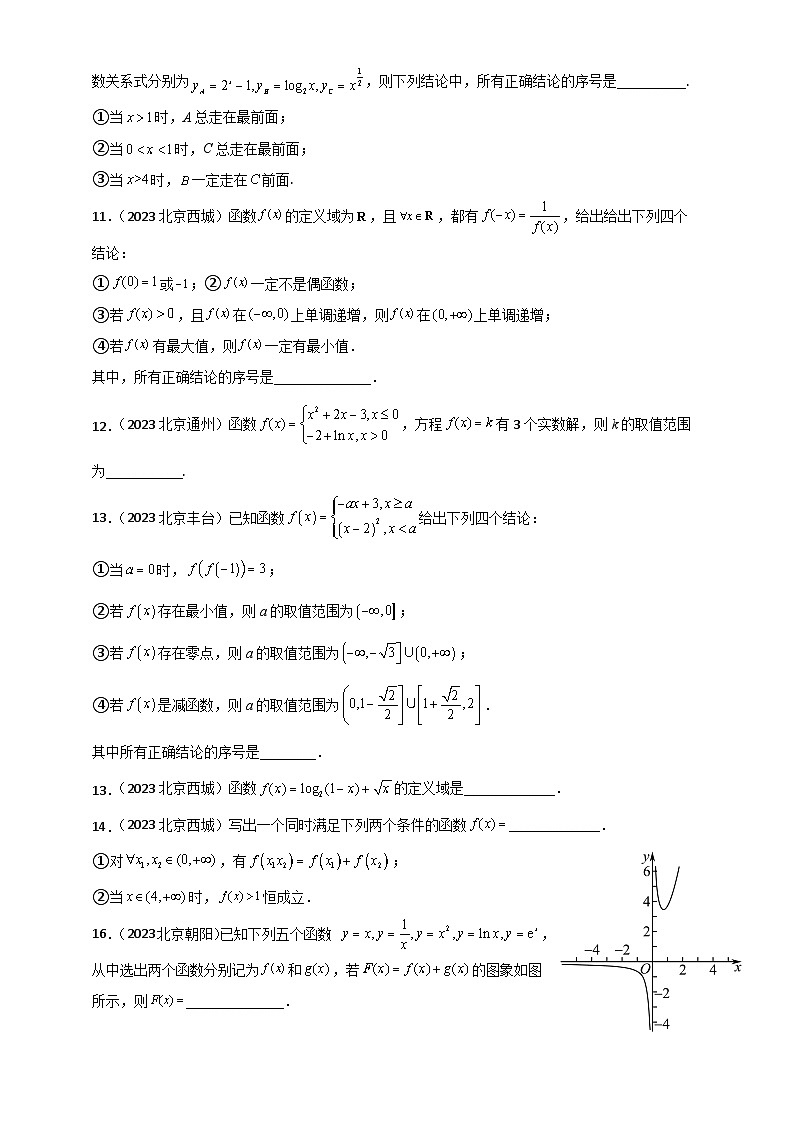 数关系式分别为 y_A = 2^x − 1, y_B = log₂x, y_C = x^{1/2}，则下列结论中，所有正确结论的序号是__________.
①当 x > 1 时，A 总走在最前面；
②当 0 < x < 1 时，C 总走在最前面；
③当 x>4 时，B 一定走在 C 前面.
11.（2023 北京西城）函数 f(x) 的定义域为 R，且 ∀x∈R，都有 f(−x) = 1/f(x)，给出给出下列四个
结论：
① f(0) = 1 或 −1；② f(x) 一定不是偶函数；
③若 f(x) > 0，且 f(x) 在 (−∞,0) 上单调递增，则 f(x) 在 (0,+∞) 上单调递增；
④若 f(x) 有最大值，则 f(x) 一定有最小值.
其中，所有正确结论的序号是______________.
12.（2023 北京通州）函数 f(x) = { x² + 2x − 3, x ≤ 0; −2 + ln x, x > 0，方程 f(x) = k 有 3 个实数解，则 k 的取值范围
为___________.
13.（2023 北京丰台）已知函数 f(x) = { −ax + 3, x ≥ a; (x − 2)², x < a 给出下列四个结论：
①当 a = 0 时， f(f(−1)) = 3；
②若 f(x) 存在最小值，则 a 的取值范围为 (−∞,0]；
③若 f(x) 存在零点，则 a 的取值范围为 (−∞,−√3]∪(0,+∞)；
④若 f(x) 是减函数，则 a 的取值范围为 (0,1−√2/2]∪[1+√2/2,2].
其中所有正确结论的序号是________.
13.（2023 北京西城）函数 f(x) = log₂(1 − x) + √x 的定义域是_____________.
14.（2023 北京西城）写出一个同时满足下列两个条件的函数 f(x) = _____________.
①对 ∀x₁,x₂∈(0,+∞)，有 f(x₁x₂) = f(x₁) + f(x₂)；
②当 x∈(4,+∞) 时， f(x) > 1 恒成立.
16.（2023北京朝阳）已知下列五个函数 y = x, y = 1/x, y = x², y = ln x, y = e^x，
从中选出两个函数分别记为 f(x) 和 g(x)，若 F(x) = f(x) + g(x) 的图象如图
所示，则 F(x) = ______________.
y
6
4
2
−4 −2 O 2 4 x
−2
−4